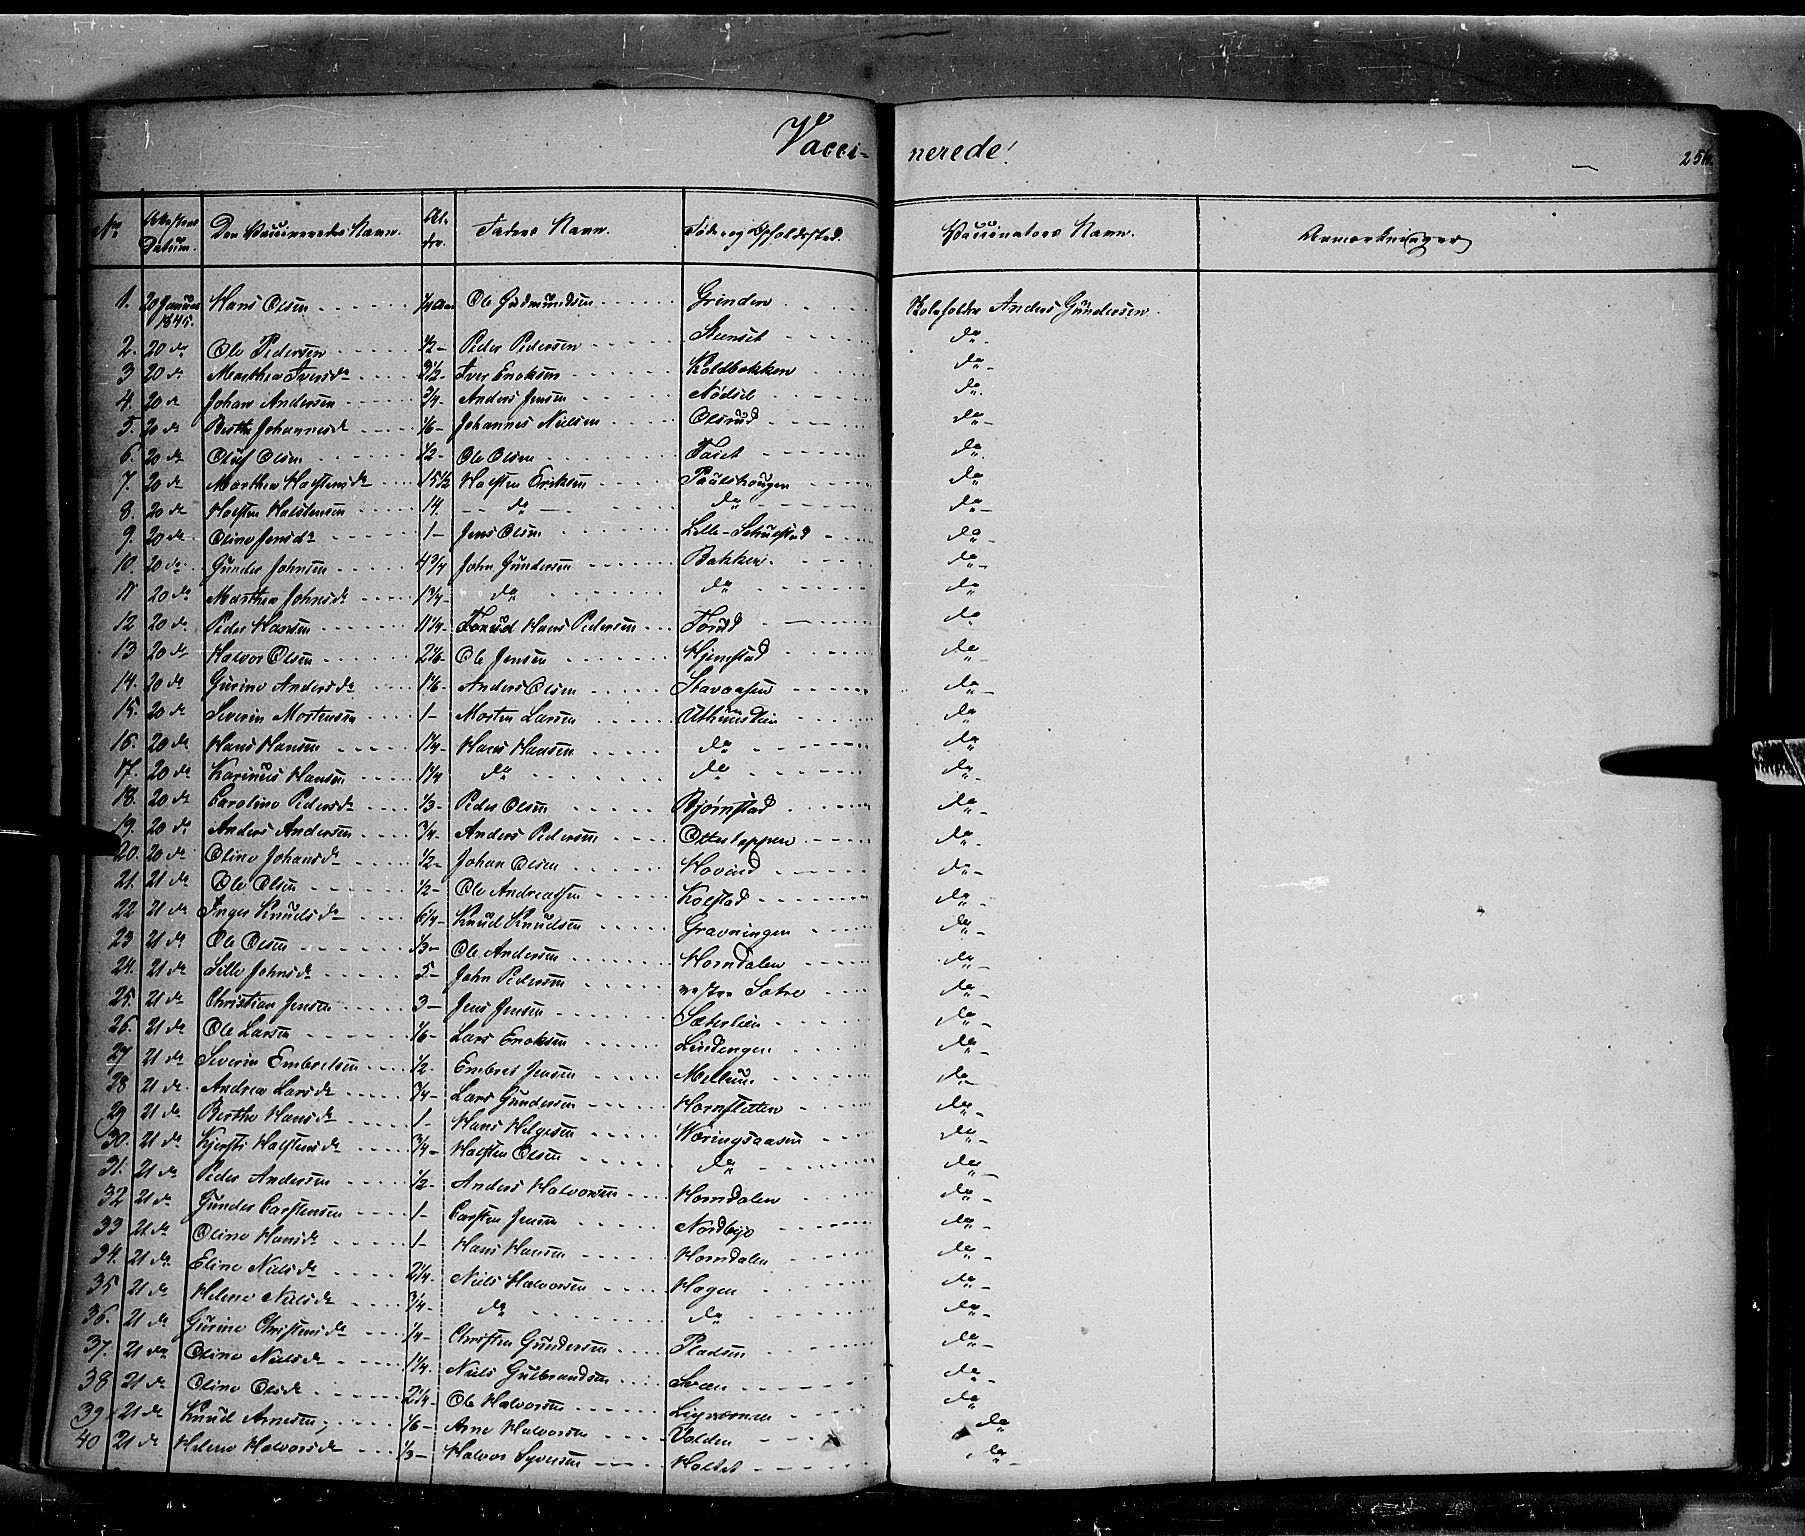 Vacci- nerede.
256.
No Attestens Datum. Den Vaccineredes Navn. Alder. Faders Navn. Føde og Opholdssted. Vaccinateurs Navn. Anmærkninger
1. 20 Januar 1845. Hans Olsen 1/4 Aar Ole Gudmundsen Grinden Anders Gundersen.
2. 20 do Ole Pedersen 1/2 - Peder Pedersen Steenset do -
3 20 do Marthea Iversdr 3 1/2 - Iver Enoksen Koldbekken do -
4. 20 do Johan Andersen 3/4 Anders Jensen Nødsit do.
5. 20 do Berthe Johannesdr 1/6 - Johannes Nielsen Olsrud do -
6. 20 do Oluf Olsen 1/2 - Ole Olsen do.
7. 20 do Marthea Halstensdr 15 1/2 Halsten Eriksen Paulshougen do
8. 20 do Halsten Halstensen 14. do do do -
9. 20 do Oline Jensdr 1 - Jens Olsen Lille- do -
10. 20 do. Gunder Johnsen 4 3/4 John Gundersen Bakken. do -
11 20 do Marthea Johnsdr 1 3/4 - do do do
12 20 do Peder Hansen 11 1/4 - Hans Pedersen Torud do
13 20 do Halvor Olsen 2 1/6 - Ole Jensen Hjemstad do -
14. 20 do Gurine Andersdr 1 1/6 - Anders Olsen Stavaasen do -
15. 20 do Severin Mortensen 1 - Morten Larsen Uthuuslien do
16. 20 do Hans Hansen 1 1/4 - Hans Hansen do do
17. 20 do Karinus Hansen 1 1/4 do do do -
18. 20 do Caroline Pedersdr 1/3 - Peder Olsen Bjørnstad do -
19. 20 do Anders Andersen 3/4 - Anders Pedersen Otterleppen do -
20. 20 do Oline Johansdr 1/2 - Johan Olsen Hovind do -
21. 21 do Ole Olsen 1/2 - Ole Andreassen Kolstad do -
22 21 do Inger Knudsdr 6 1/4 - Knud Knudsen Gravningen do -
23 21 do Ole Olsen 1/3 - Ole Andersen Horndalen do -
24. 21 do Sille Johnsdr 5 - John Pedersen vestre Sætre do -
25. 21 do Christian Jensen 3 - Jens Jensen Sæterlien do -
26. 21 do Ole Larsen 1/6 - Lars Enoksen Lindengen do -
27 21 do Severin Embretsen 1/2 - Embret Jensen Mellum do -
28 21 do Andrea Larsdr 3/4 - Lars Gundersen Hornsletten do -
29 21 do Berthe Hansdr 1 - Hans Helgesen Wæringsaasen do -
30. 21 do Kjersti Halstensdr 3/4 - Halsten Olsen do do -
31. 21 do Peder Andersen 1/2 - Anders Halvorsen Horndalen do -
32 21 do Gunder Carstensen 1 - Carsten Jensen Nordbye do -
33 21 do Oline Hansdr 1 - Hans Hansen Horndalen do -
34. 21 do Eline Nielsdr 2 1/4 - Niels Halvorsen Hagen do -
35 21 do Helene Nielsdr 3/4 - do do do -
36. 21 do Gurine Christensdr 1/4 - Christen Gundersen Pladsen do -
37. 21 do Oline Nielsdr 1 1/4 - Niels Gulbrandsen Sveen do -
38 21 do Oline Olsdr 2 1/4 - Ole Halvorsen do
39 21 do Knud Arnesen 1/6 - Arne Halvorsen Volden do
40 21 do Helene Halvorsdr 1/3 - Halvor Syversen Holtet do -